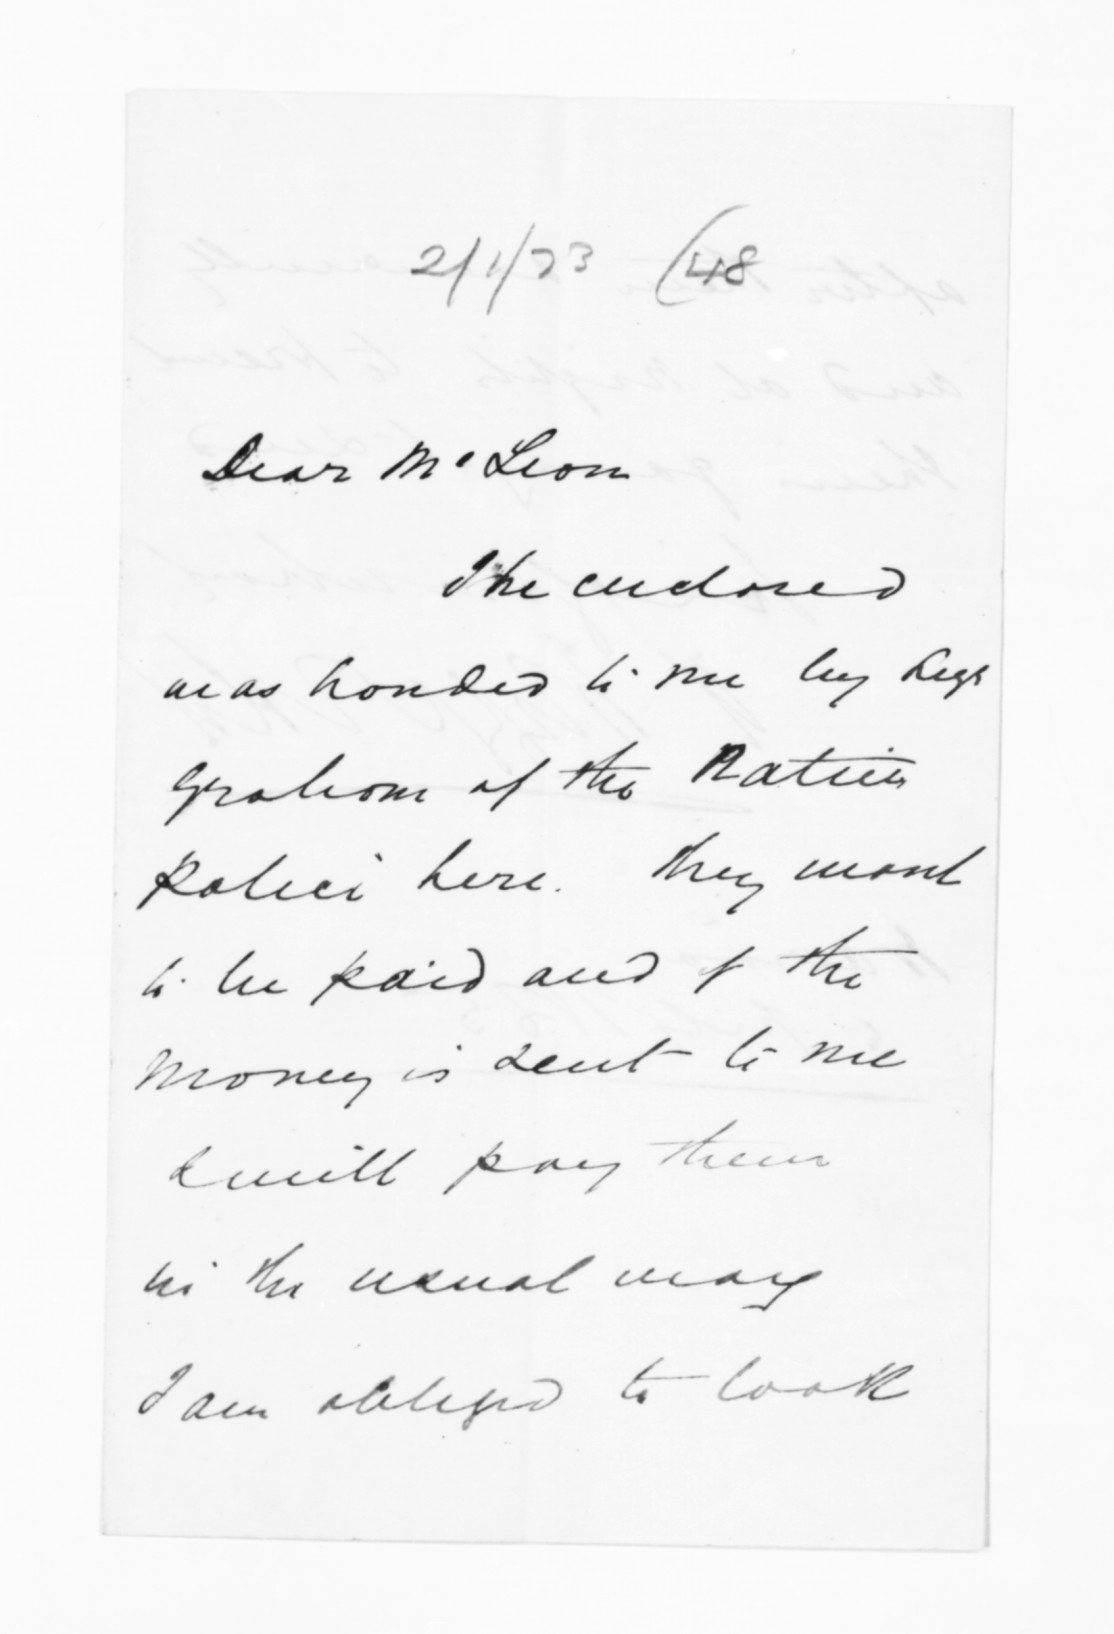 2/1/73 (48
Dear McLeon
The enclosed
was handed to me by Sergt
Graham of the Native
Police here. They want
to be paid and if the
money is sent to me
I will pay them
in the usual way
I am obliged to look